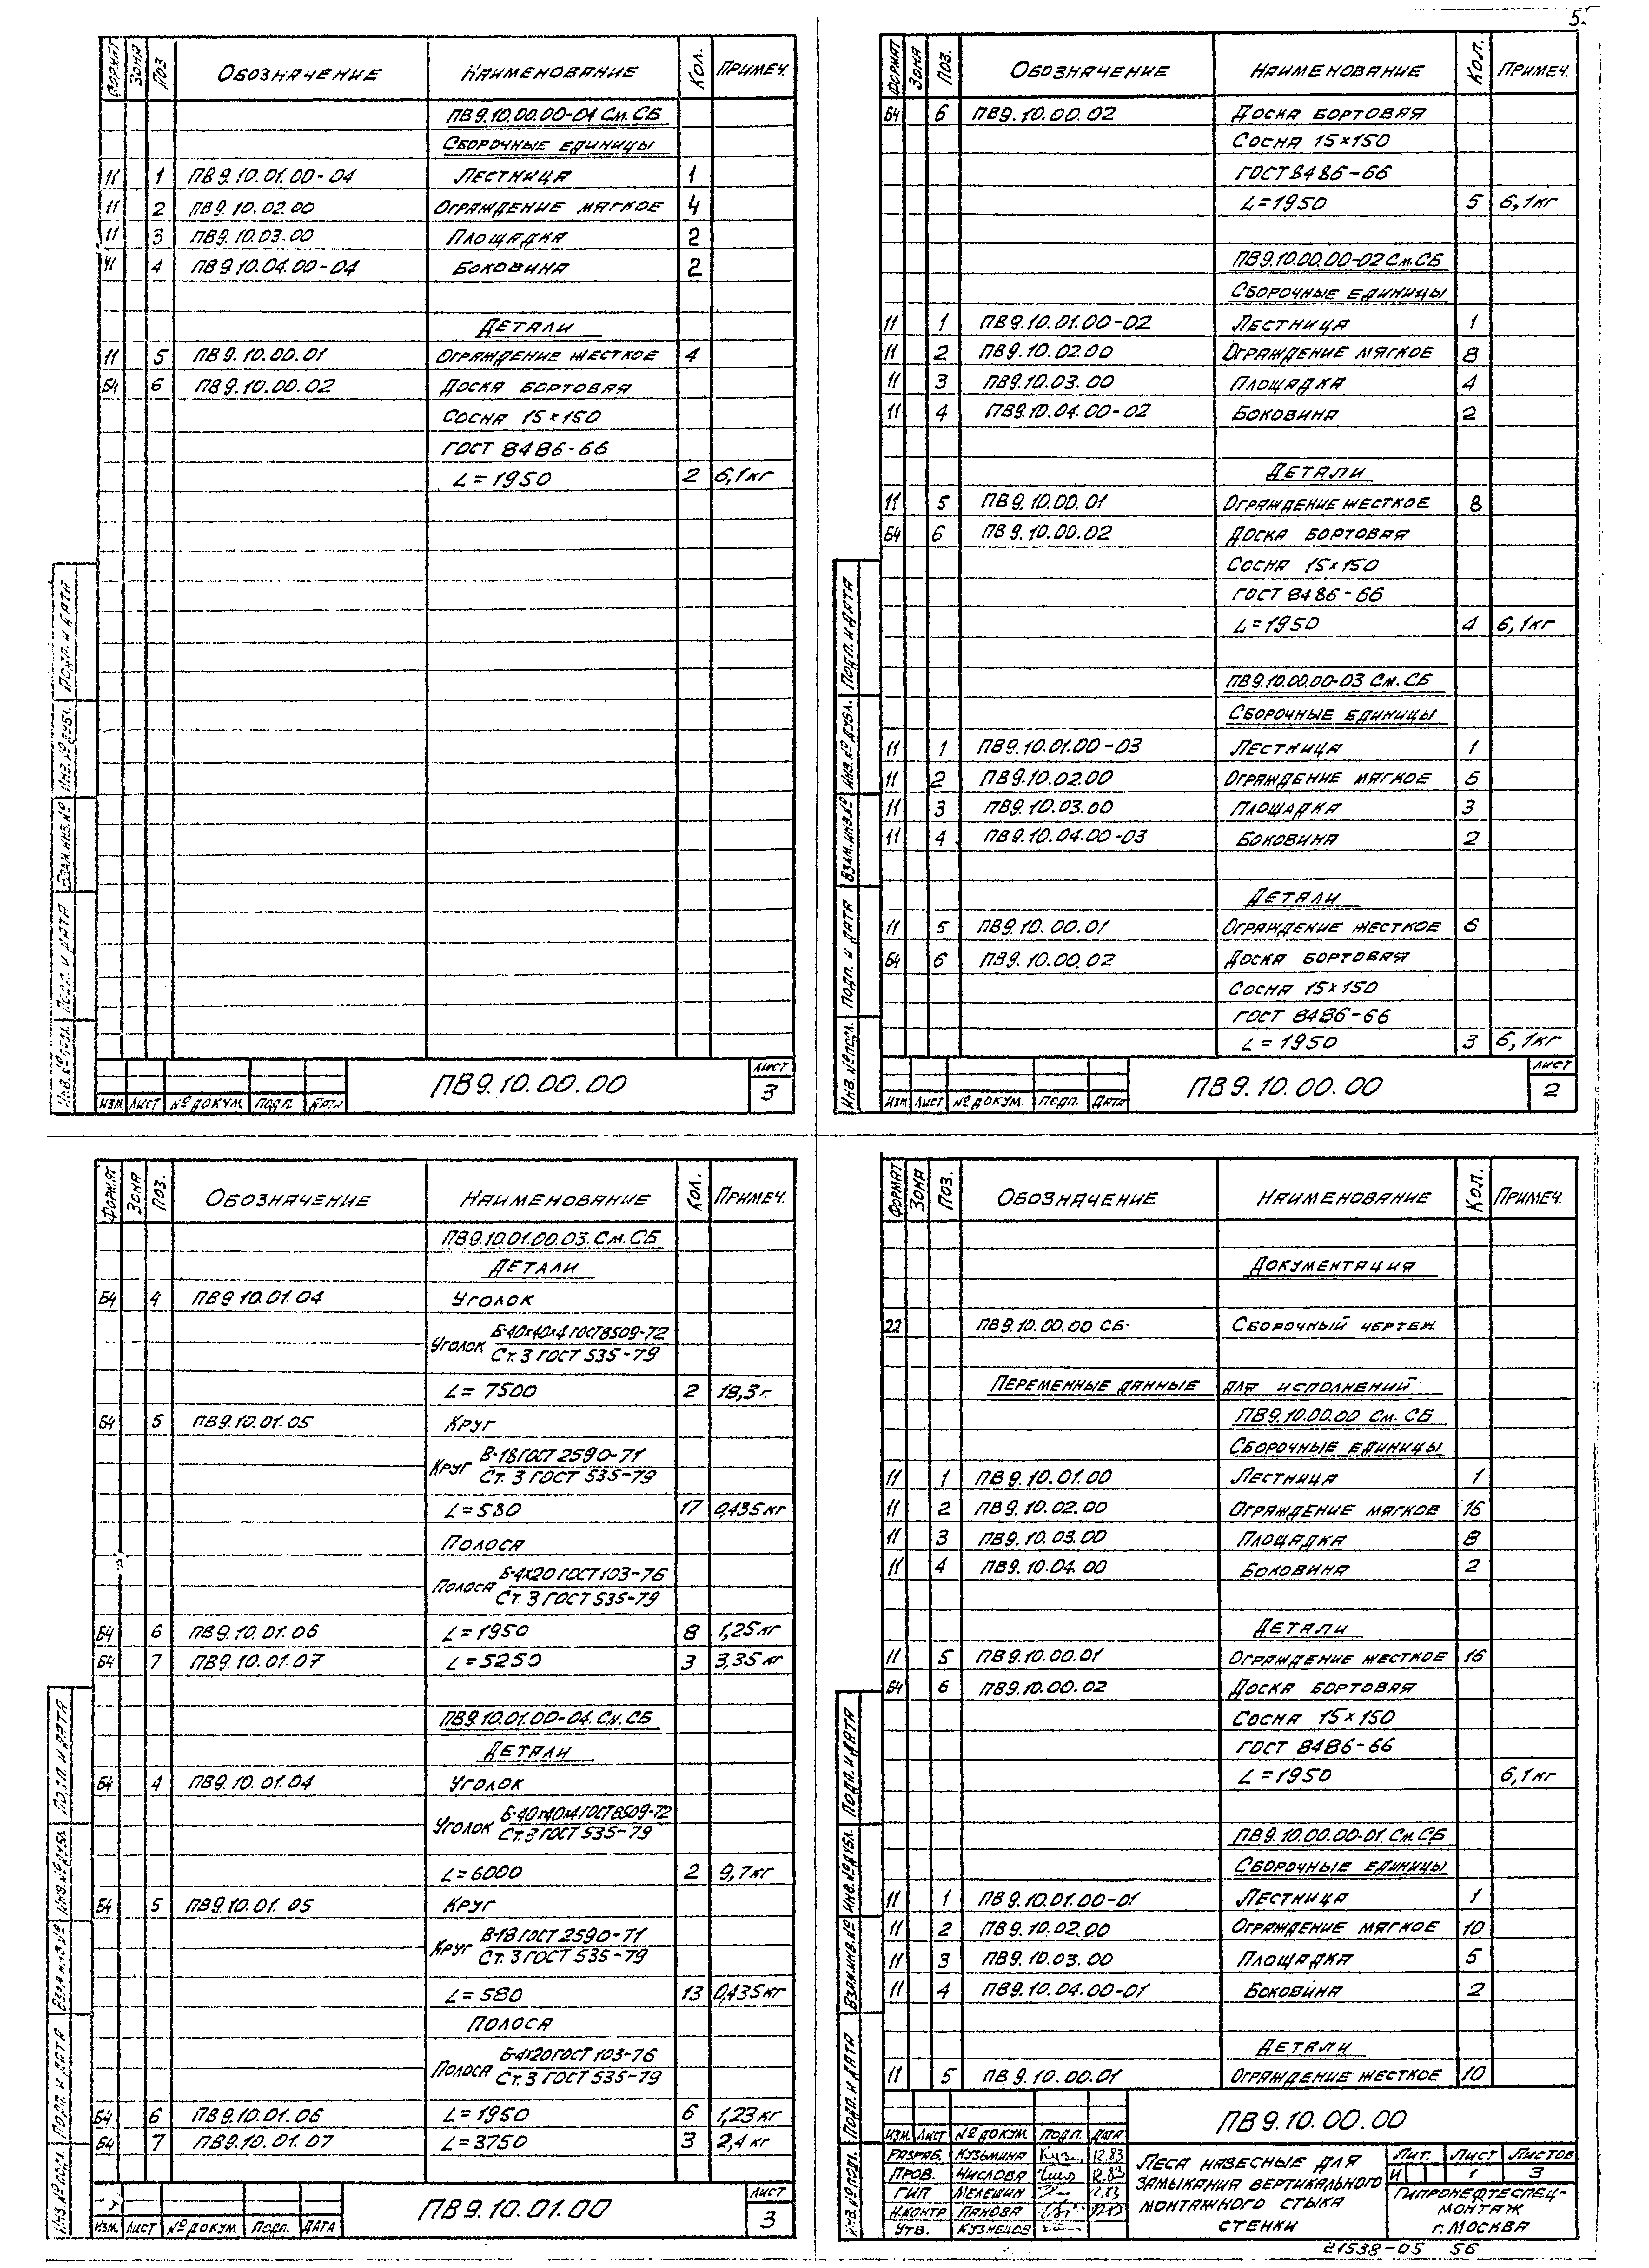 5
ФОРМАТ ЗОНА ПОЗ ОБОЗНАЧЕНИЕ НАИМЕНОВАНИЕ КОЛ. ПРИМЕЧ.
ПВ9.10.00.00-04 См. СБ
СБОРОЧНЫЕ ЕДИНИЦЫ
11 1 ПВ9.10.01.00-04 ЛЕСТНИЦА 1
11 2 ПВ9.10.02.00 ОГРАЖДЕНИЕ МЯГКОЕ 4
11 3 ПВ9.10.03.00 ПЛОЩАДКА 2
11 4 ПВ9.10.04.00-04 БОКОВИНА 2
ДЕТАЛИ
11 5 ПВ9.10.00.01 ОГРАЖДЕНИЕ ЖЕСТКОЕ 4
Б4 6 ПВ9.10.00.02 ДОСКА БОРТОВАЯ
СОСНА 15×150
ГОСТ 8486-66
L=1950 2 6,1кг
ИНВ.№ подл. ПОДП. И ДАТА ВЗАМ.ИНВ.№ ИНВ.№ ДУБЛ. ПОДП. И ДАТА
ИЗМ ЛИСТ № ДОКУМ. ПОДП. ДАТА
ПВ9.10.00.00
ЛИСТ
3
ФОРМАТ ЗОНА ПОЗ. ОБОЗНАЧЕНИЕ НАИМЕНОВАНИЕ КОЛ. ПРИМЕЧ.
Б4 6 ПВ9.10.00.02 ДОСКА БОРТОВАЯ
СОСНА 15×150
ГОСТ 8486-66
L=1950 5 6,1кг
ПВ9.10.00.00-02 См. СБ
СБОРОЧНЫЕ ЕДИНИЦЫ
11 1 ПВ9.10.01.00-02 ЛЕСТНИЦА 1
11 2 ПВ9.10.02.00 ОГРАЖДЕНИЕ МЯГКОЕ 8
11 3 ПВ9.10.03.00 ПЛОЩАДКА 4
11 4 ПВ9.10.04.00-02 БОКОВИНА 2
ДЕТАЛИ
11 5 ПВ9.10.00.01 ОГРАЖДЕНИЕ ЖЕСТКОЕ 8
Б4 6 ПВ9.10.00.02 ДОСКА БОРТОВАЯ
СОСНА 15×150
ГОСТ 8486-66
L=1950 4 6,1кг
ПВ9.10.00.00-03 См. СБ
СБОРОЧНЫЕ ЕДИНИЦЫ
11 1 ПВ9.10.01.00-03 ЛЕСТНИЦА 1
11 2 ПВ9.10.02.00 ОГРАЖДЕНИЕ МЯГКОЕ 6
11 3 ПВ9.10.03.00 ПЛОЩАДКА 3
11 4 ПВ9.10.04.00-03 БОКОВИНА 2
ДЕТАЛИ
11 5 ПВ9.10.00.01 ОГРАЖДЕНИЕ ЖЕСТКОЕ 6
Б4 6 ПВ9.10.00.02 ДОСКА БОРТОВАЯ
СОСНА 15×150
ГОСТ 8486-66
L=1950 3 6,1кг
ИНВ.№ ПОДЛ. ПОДП. И ДАТА ВЗАМ.ИНВ.№ ИНВ.№ ДУБЛ. ПОДП. И ДАТА
ИЗМ ЛИСТ № ДОКУМ. ПОДП. ДАТА
ПВ9.10.00.00
ЛИСТ
2
ФОРМАТ ЗОНА ПОЗ. ОБОЗНАЧЕНИЕ НАИМЕНОВАНИЕ КОЛ. ПРИМЕЧ.
ПВ9.10.01.00.03. См. СБ
ДЕТАЛИ
Б4 4 ПВ9.10.01.04 УГОЛОК
УГОЛОК Б-40×40×4 ГОСТ 8509-72
Ст.3 ГОСТ 535-79
L=7500 2 18,3г
Б4 5 ПВ9.10.01.05 КРУГ
КРУГ В-18 ГОСТ 2590-71
Ст.3 ГОСТ 535-79
L=580 17 0,135кг
ПОЛОСА
ПОЛОСА Б-4×20 ГОСТ 103-76
Ст.3 ГОСТ 535-79
Б4 6 ПВ9.10.01.06 L=1950 8 1,25кг
Б4 7 ПВ9.10.01.07 L=5250 3 3,35кг
ПВ9.10.01.00-04. См. СБ
ДЕТАЛИ
Б4 4 ПВ9.10.01.04 УГОЛОК
УГОЛОК Б-40×40×4 ГОСТ 8509-72
Ст.3 ГОСТ 535-79
L=6000 2 9,7кг
Б4 5 ПВ9.10.01.05 КРУГ
КРУГ В-18 ГОСТ 2590-71
Ст.3 ГОСТ 535-79
L=580 13 0,135кг
ПОЛОСА
ПОЛОСА Б-4×20 ГОСТ 103-76
Ст.3 ГОСТ 535-79
Б4 6 ПВ9.10.01.06 L=1950 6 1,23кг
Б4 7 ПВ9.10.01.07 L=3750 3 2,4кг
ИНВ.№ ПОДЛ. ПОДП. И ДАТА ВЗАМ.ИНВ.№ ИНВ.№ ДУБЛ. ПОДП. И ДАТА
ИЗМ. ЛИСТ № ДОКУМ. ПОДП. ДАТА
ПВ9.10.01.00
ЛИСТ
3
ФОРМАТ ЗОНА ПОЗ. ОБОЗНАЧЕНИЕ НАИМЕНОВАНИЕ КОЛ. ПРИМЕЧ.
ДОКУМЕНТАЦИЯ
22 ПВ9.10.00.00 СБ СБОРОЧНЫЙ ЧЕРТЕЖ
ПЕРЕМЕННЫЕ ДАННЫЕ ДЛЯ ИСПОЛНЕНИЙ
ПВ9.10.00.00 См. СБ
СБОРОЧНЫЕ ЕДИНИЦЫ
11 1 ПВ9.10.01.00 ЛЕСТНИЦА 1
11 2 ПВ9.10.02.00 ОГРАЖДЕНИЕ МЯГКОЕ 16
11 3 ПВ9.10.03.00 ПЛОЩАДКА 8
11 4 ПВ9.10.04.00 БОКОВИНА 2
ДЕТАЛИ
11 5 ПВ9.10.00.01 ОГРАЖДЕНИЕ ЖЕСТКОЕ 16
Б4 6 ПВ9.10.00.02 ДОСКА БОРТОВАЯ
СОСНА 15×150
ГОСТ 8486-66
L=1950 6,1кг
ПВ9.10.00.00-01. См. СБ
СБОРОЧНЫЕ ЕДИНИЦЫ
11 1 ПВ9.10.01.00-01 ЛЕСТНИЦА 1
11 2 ПВ9.10.02.00 ОГРАЖДЕНИЕ МЯГКОЕ 10
11 3 ПВ9.10.03.00 ПЛОЩАДКА 5
11 4 ПВ9.10.04.00-01 БОКОВИНА 2
ДЕТАЛИ
11 5 ПВ9.10.00.01 ОГРАЖДЕНИЕ ЖЕСТКОЕ 10
ИНВ.№ ПОДЛ. ПОДП. И ДАТА ВЗАМ.ИНВ.№ ИНВ.№ ДУБЛ. ПОДП. И ДАТА
ПВ9.10.00.00
ИЗМ. ЛИСТ № ДОКУМ. ПОДП. ДАТА
РАЗРАБ. КУЗЬМИНА 12.83
ПРОВ. ЧИСЛОВА 12.83
ГИП МЕЛЕШИН 12.83
Н.КОНТР ПАНОВА
УТВ. КУЗНЕЦОВ
ЛЕСА НАВЕСНЫЕ ДЛЯ
ЗАМЫКАНИЯ ВЕРТИКАЛЬНОГО
МОНТАЖНОГО СТЫКА
СТЕНКИ
ЛИТ. ЛИСТ ЛИСТОВ
И 1 3
ГИПРОНЕФТЕСПЕЦ-
МОНТАЖ
г. МОСКВА
21538-05 56